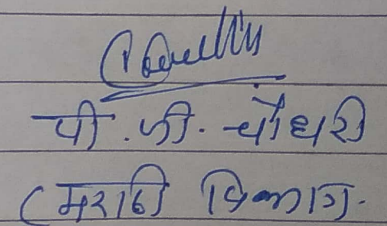 पी. जी. चौधरी
(मराठी विभाग.